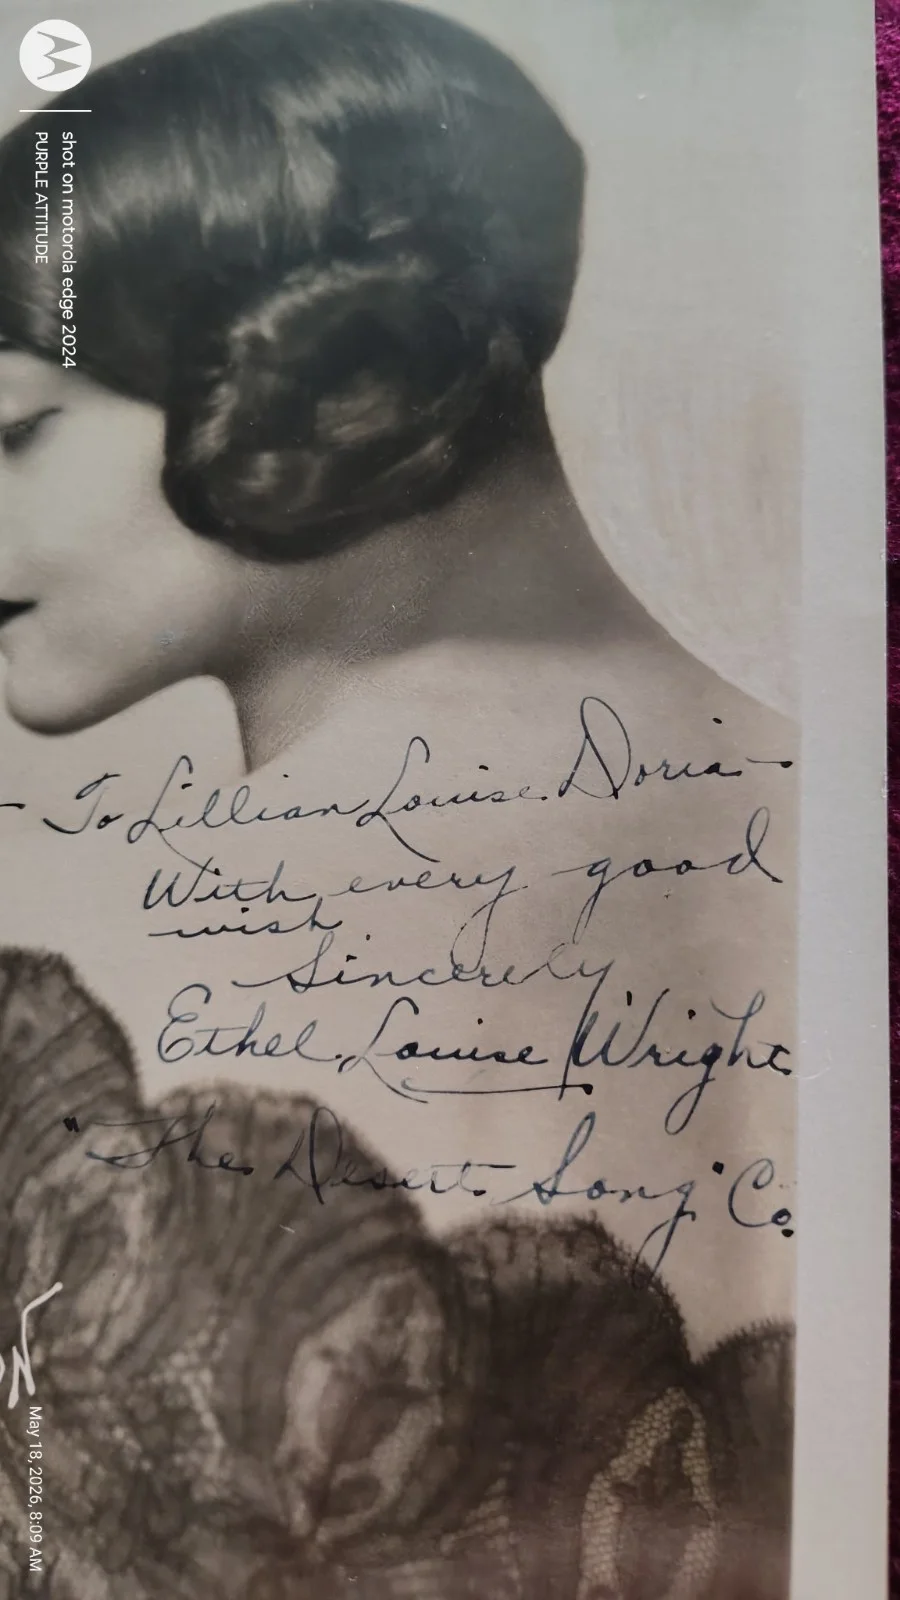 To Lillian Louise Doria—
With every good
wish
Sincerely
Ethel Louise Wright
"The Desert Song" Co.
shot on motorola edge 2024
PURPLE ATTITUDE
May 18, 2026, 8:09 AM